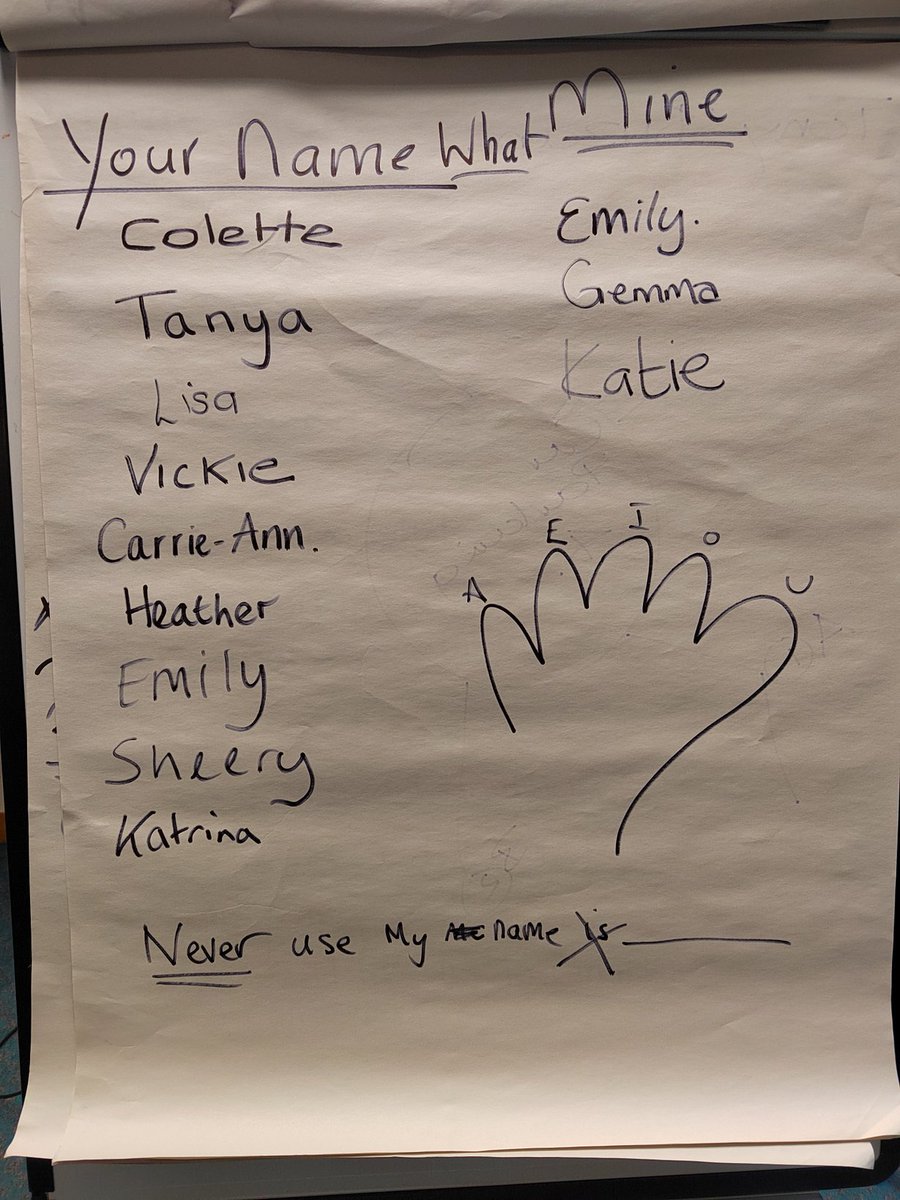 Your Name What Mine
Colette
Tanya
Lisa
Vickie
Carrie-Ann.
Heather
Emily
Sheery
Katrina
Emily.
Gemma
Katie
A E I O U
Never use My name is